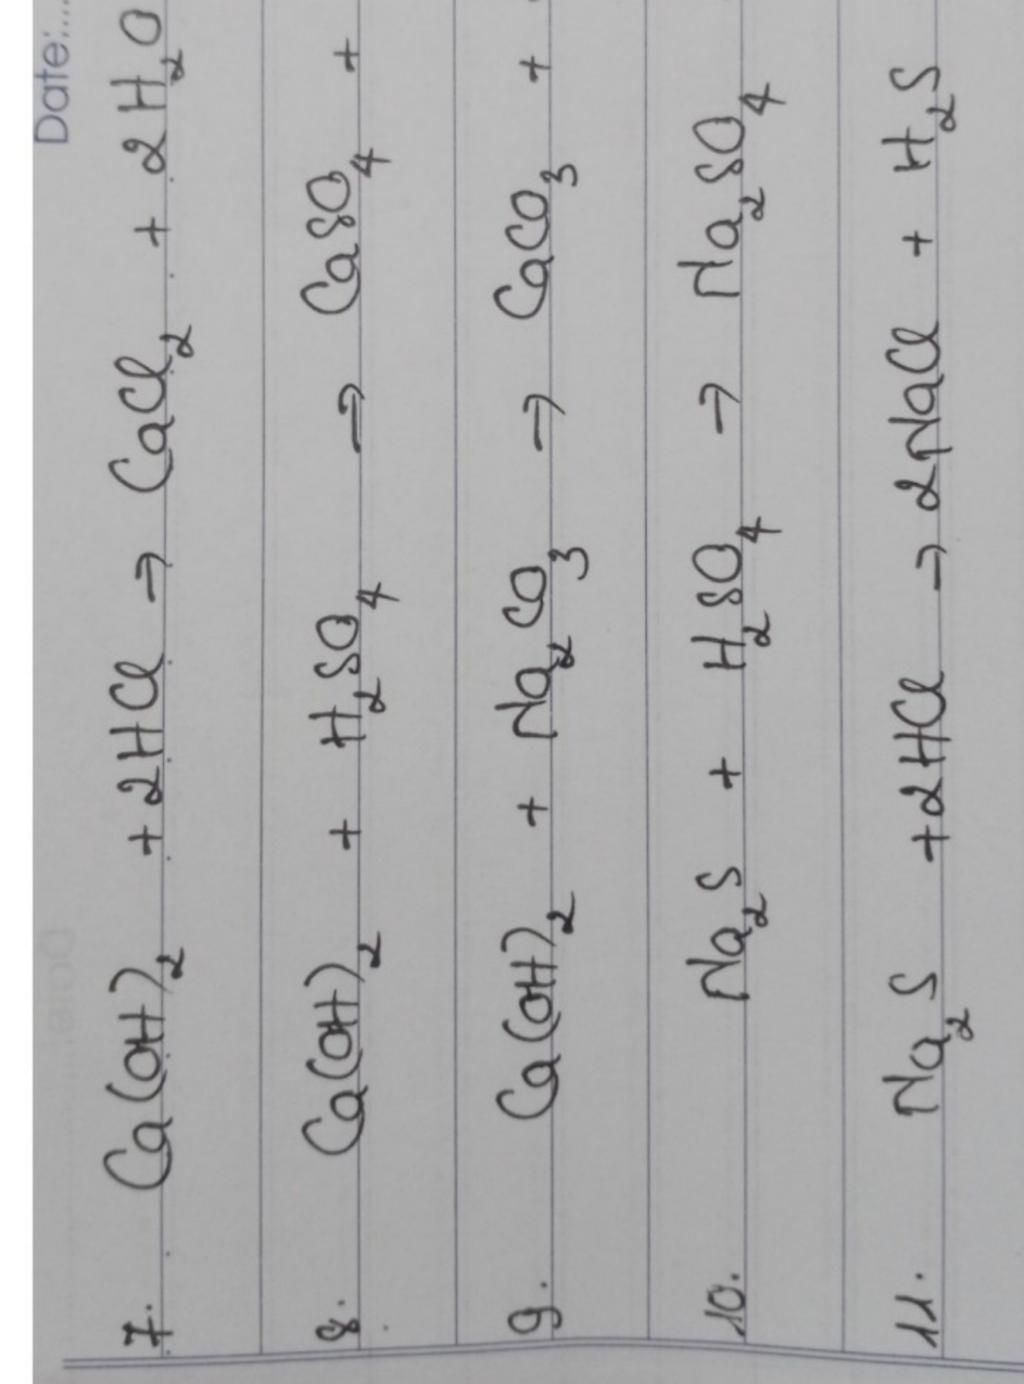 Date:....
7. Ca(OH)₂ + 2HCl → CaCl₂ + 2H₂O
8. Ca(OH)₂ + H₂SO₄ → CaSO₄ +
9. Ca(OH)₂ + Na₂CO₃ → CaCO₃ +
10. Na₂S + H₂SO₄ → Na₂SO₄
11. Na₂S + 2HCl → 2NaCl + H₂S